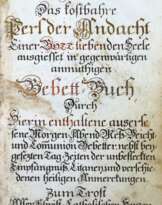 Das kostbahre
Perl der Andacht
Einer GOTT liebenden Seele
ausgieset in gegenwärtigen
anmüthigen
Gebett-Buch
Durch
Darin enthaltene auserle
sene Morgen Abend Meß Beich
und Communion Gebetter: nebst bey
gesezten Tag-Zeiten der unbefleckten
Empfängnuß, Litaneyen, und verschie
denen heiligen Anmerckungen
Zum Trost